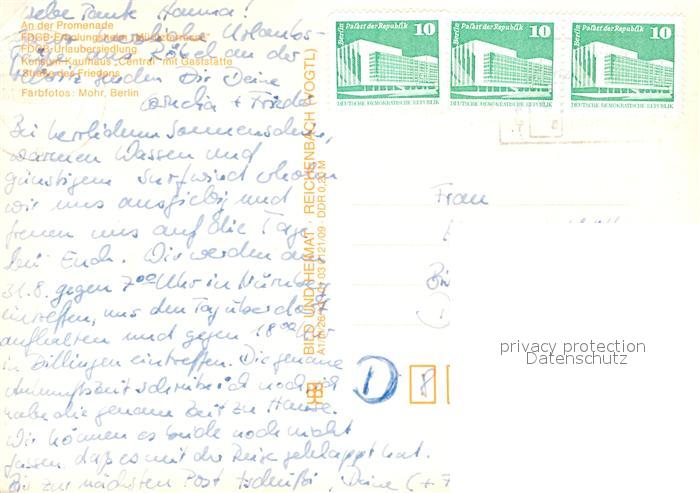 Liebe Tante Hanna!
An der Promenade
FDGB-Erholungsheim "Müritzterrasse"
FDGB-Urlaubersiedlung
Konsum-Kaufhaus "Central" mit Gaststätte
Straße des Friedens
Farbfotos: Mohr, Berlin
Urlaubs-
Röbel an der
Müritz senden Dir Deine
+ Frieder
Bei herrlichem Sonnenschein,
warmen Wasser und
günstigem Surfwind erholen
wir uns ausgiebig und
freuen uns auf die Tage
bei Euch. Wir werden am
31.8. gegen 7 00 Uhr in Nürnberg
eintreffen, uns den Tag über dort
aufhalten und gegen 18 00 Uhr
in Dillingen eintreffen. Die genaue
Ankunftszeit schreibe ich noch, ich
habe die genaue Zeit zu Hause.
Wir können es beide noch nicht
fassen, daß es mit der Reise geklappt hat.
Bis zur nächsten Post tschüßi, Deine C + F
BILD UND HEIMAT · REICHENBACH (VOGTL)
DDR 0,20 M
Berlin Palast der Republik 10
DEUTSCHE DEMOKRATISCHE REPUBLIK
Berlin Palast der Republik 10
DEUTSCHE DEMOKRATISCHE REPUBLIK
Berlin Palast der Republik 10
DEUTSCHE DEMOKRATISCHE REPUBLIK
Frau
D 8
privacy protection
Datenschutz